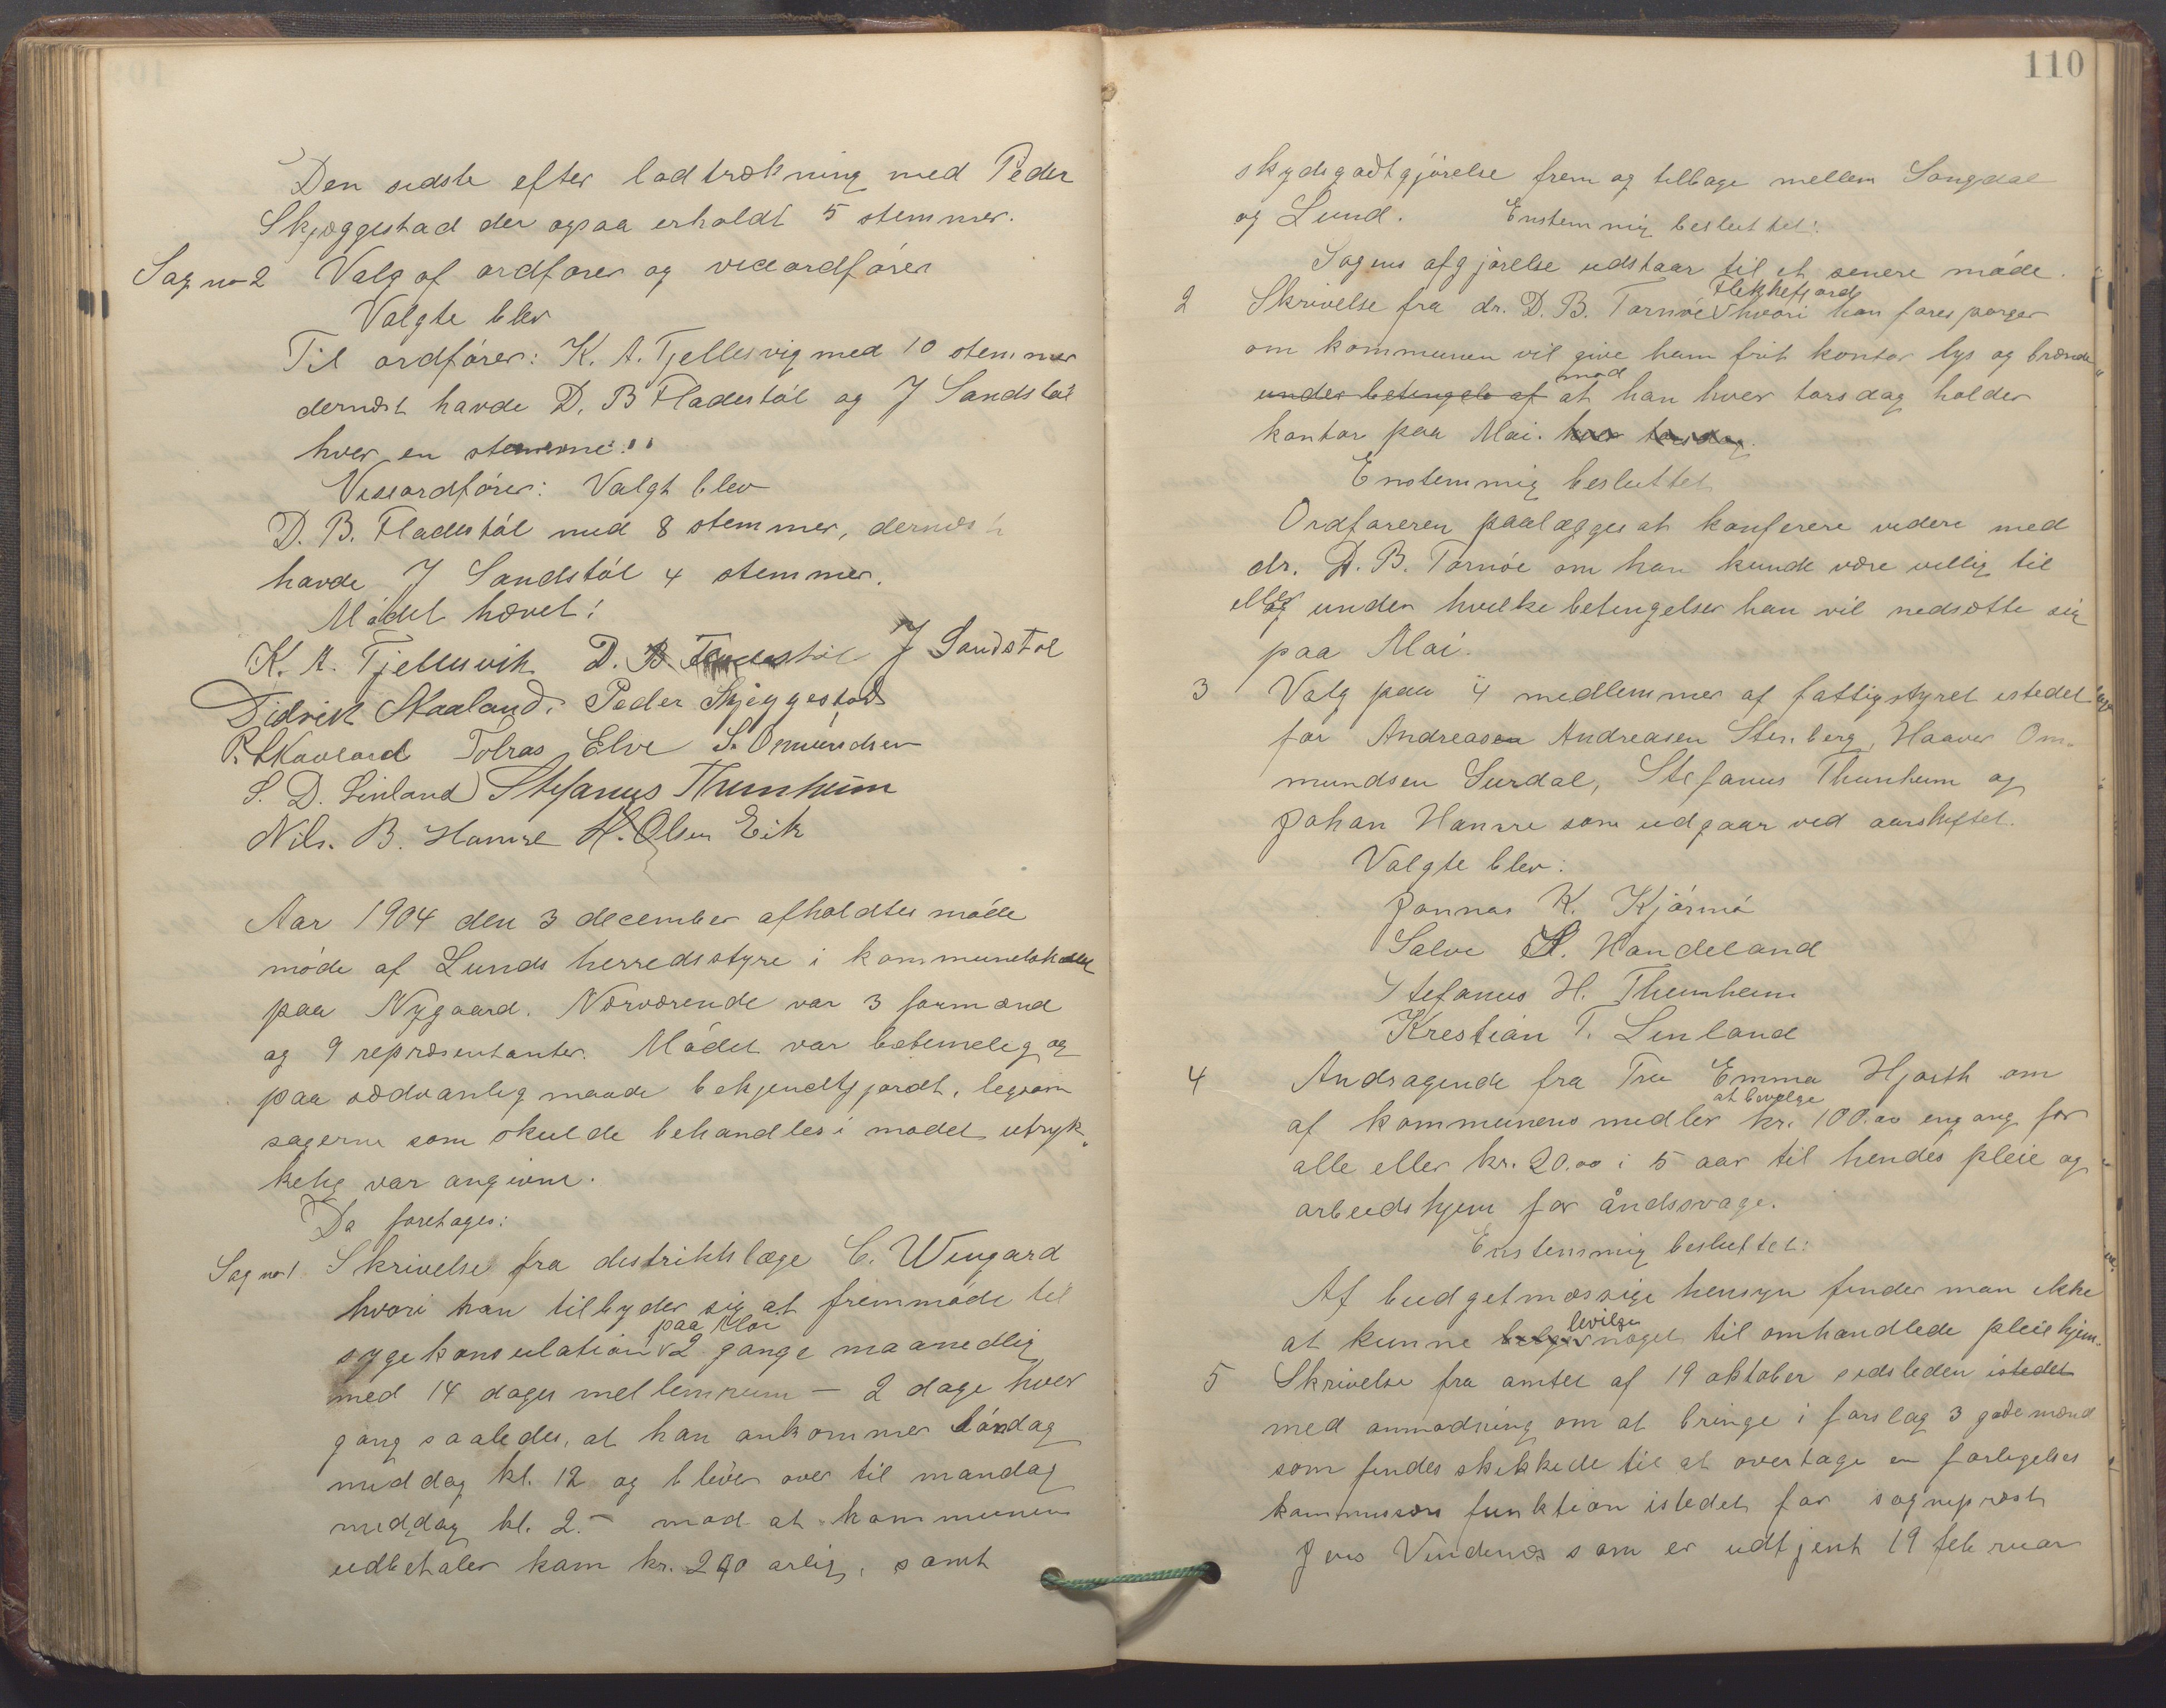 Den sidste efter lodtrækning med Peder
Skjæggestad der ogsaa erholdt 5 stemmer.
Sag no 2 Valg af ordfører og viceordfører
Valgte blev
Til ordfører: K. A. Tjellesvig med 10 stemmer
dernæst havde D. B Fladestøl og J Sandstøl
hver en stemme.
Viseordfører: Valgt blev
D. B. Fladestøl med 8 stemmer, dernæst
havde J Sandstøl 4 stemmer.
Mødet hævet!
K. A. Tjellesvik D. B Fladestøl J Sandstøl
Didrik Skaaland. Peder Skjeggestad
P. Skaaland Tobias Elve S. Omundsen
S. D. Linland Stefanus Thunheim
Nils. B. Hamre H. Olsen Eik
Aar 1904 den 3 december afholdtes møde
møde af Lunds herredsstyre i kommunelokalet
paa Nygaard. Nærværende var 3 formænd
og 9 repræsentanter. Mødet var betimelig og
paa sædvanlig maade bekjendtgjordt, ligesom
sagerne som skulde behandles i mødet utryk„
kelig var angivne.
Da foretages:
Sag no 1 Skrivelse fra distriktslæge C. Wengard
hvori han tilbyder sig at fremmøde til
paa Moi
sygekonsulation 2 gange maanedlig
med 14 dages mellemrum – 2 dage hver
gang saaledes, at han ankommer søndag
middag kl. 12 og bliver over til mandag
middag kl. 2. – mod at kommunen
udbetaler ham kr. 200 arlig, samt
110
skydsgodtgjørelse frem og tilbage mellem Sogndal
og Lund. Enstemmig besluttet:
Sagens afgjørelse udstaar til et senere møde.
Flekkefjord
2 Skrivelse fra dr. D. B. Tornøe hvori han forespørger
om kommunen vil give ham frit kontor lys og brænde„
mod
under betingels af at han hver torsdag holder
kontor paa Moi. hver torsdag.
Enstemmig besluttet
Ordføreren paalægges at konferere videre med
dr. D. B. Tornøe om han kunde være villig til
eller og under hvilke betingelser han vil nedsætte sig
paa Moi.
3 Valg paa 4 medlemmer af fattigstyret istedet
for Andreasen Andreasen Stenberg, Haaver Om„
mundsen Surdal, Stefanus Thunheim og
Johan Hamre som udgaar ved aarskiftet.
Valgte blev:
Jonnas K. Kjørmo
Salve S. Handeland
Stefanus H. Thunheim
Krestian T. Linland
4 Andragende fra Fru Emma Hjorth om
at bevilge
af kommunens midler kr. 100.00 engang for
alle eller kr. 20.00 i 5 aar til hendes pleie og
arbeidshjem for åndssvage.
Enstemmig besluttet:
Af budgetmæssige hensyn finder man ikke
bevilge
at kunne noget til omhandlede pleiehjem.
5 Skrivelse fra amtet af 19 oktober sidsleden istedet
med anmodning om at bringe i forslag 3 gode mænd
som findes skikkede til at overtage en forligelses
kommissærs funktion istedet for sogneprest
Jens Vindenæs som er udtjent 19 februar